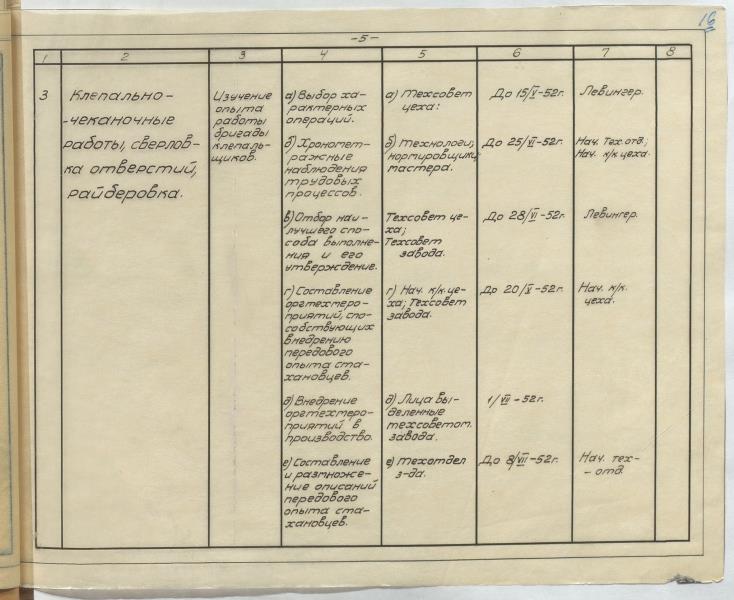 16
-5-
1 2 3 4 5 6 7 8
3
Клепально-
-чеканочные
работы, сверлов-
ка отверстий,
райберовка.
Изучение
опыта
работы
бригады
клепаль-
щиков.
а) Выбор ха-
рактерных
операций.
а) Техсовет
цеха:
До 15/V-52г.
Левингер.
б) Хрономет-
ражные
наблюдения
трудовых
процессов.
б) Технологи;
нормировщики;
мастера.
До 25/VI-52г.
Нач. Тех.отд.;
Нач. к/к цеха.
в) Отбор наи-
лучшего спо-
соба выполне-
ния и его
утверждение.
Техсовет це-
ха;
Техсовет
завода.
До 28/VI-52г.
Левингер.
г) Составление
оргтехмеро-
приятий, спо-
собствующих
внедрению
передового
опыта ста-
хановцев.
г) Нач. к/к. це-
ха; Техсовет
завода.
До 20/V-52г.
Нач. к/к.
цеха.
д) Внедрение
оргтехмеро-
приятий в
производство.
д) Лица вы-
деленные
техсоветом
завода.
1/VII-52г.
е) Составление
и размноже-
ние описаний
передового
опыта ста-
хановцев.
е) Техотдел
з-да.
До 8/VII-52г.
Нач. тех-
-отд.